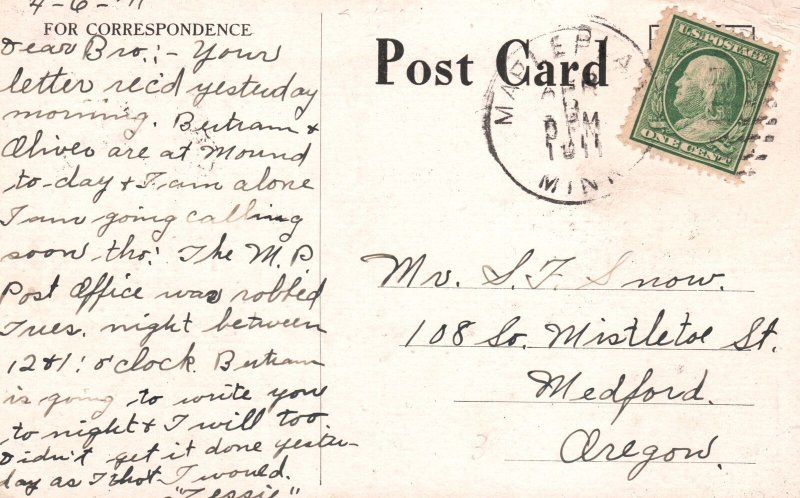 4-6-'11
FOR CORRESPONDENCE
Dear Bro:- Your
letter rec'd yesterday
morning. Bertram &
Oliver are at Mound
to-day & I am alone
I am going calling
soon tho! The M. P.
Post Office was robbed
Tues. night between
12 & 1! o'clock. Bertram
is going to write you
to night & I will too
Didn't get it done yester-
day as I thot I would.
"Tessie"
Post Card
MAPLE PLA
APR
PM
1911
MINN
U.S. POSTAGE
ONE CENT
Mr. S. F. Snow.
108 So. Mistletoe St.
Medford.
Oregon.